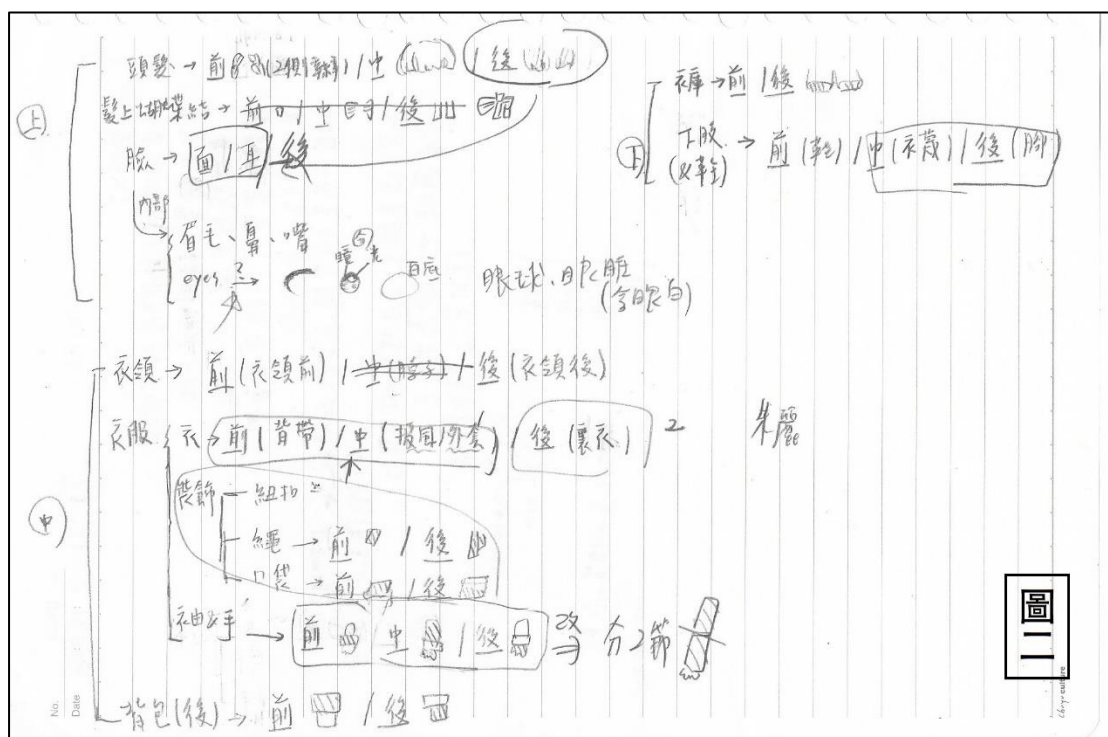 上
頭髮 → 前 (2個辮) / 中 / 後
髮上蝴蝶結 → 前 / 中 / 後
臉 → 面 / 耳 / 後
內部
眉毛、鼻、嘴
eyes ? → 瞳 光 白底 眼球、眼眶
(含眼白)
下
裤 → 前 / 後
下肢 (&鞋) → 前 (鞋) / 中 (衣襪) / 後 (腳)
中
衣領 → 前 (衣領前) / 中 (脖子) / 後 (衣領後)
衣服 衣 → 前 (背帶) / 中 (披肩/外套) / 後 (裏衣) 2
朱麗
裝飾 紐扣
繩 → 前 / 後
口袋 → 前 / 後
衣袖&手 → 前 / 中 / 後 改 → 分2節
背包 (後) → 前 / 後
圖二
No.
Date